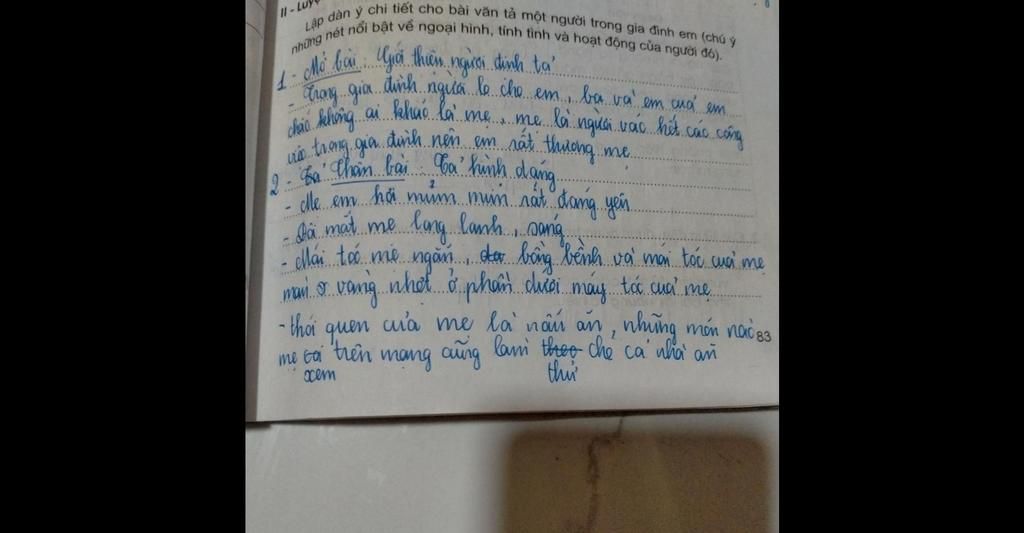 II - Luy
Lập dàn ý chi tiết cho bài văn tả một người trong gia đình em (chú ý
những nét nổi bật về ngoại hình, tính tình và hoạt động của người đó).
1 - Mở bài: Giới thiệu người định tả
- Trong gia đình người lo cho em, ba và em của em
chắc không ai khác là mẹ, mẹ là người vác hết các công
việc trong gia đình nên em rất thương mẹ
2 - Tả Thân bài: Tả hình dáng
- Mẹ em hơi mủm mỉm rất đáng yêu
- Đôi mắt mẹ long lanh, sáng
- Mái tóc mẹ ngắn, bồng bềnh và mái tóc của mẹ
màu vàng nhạt ở phần dưới mấy tóc của mẹ
- thói quen của mẹ là nấu ăn, những món nào
83
mẹ trên mạng cũng làm theo cho cả nhà ăn
xem thử